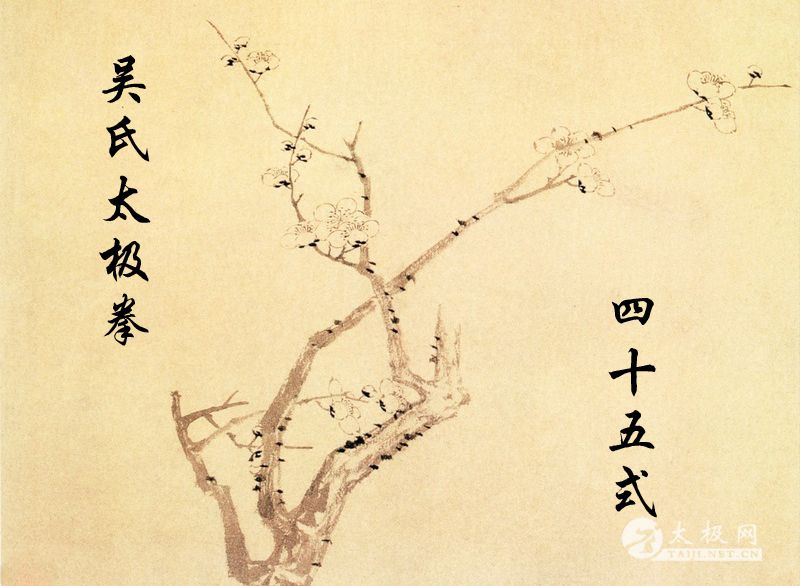 吴氏太极拳
四十五式
太极网
TAIJI.NET.CN